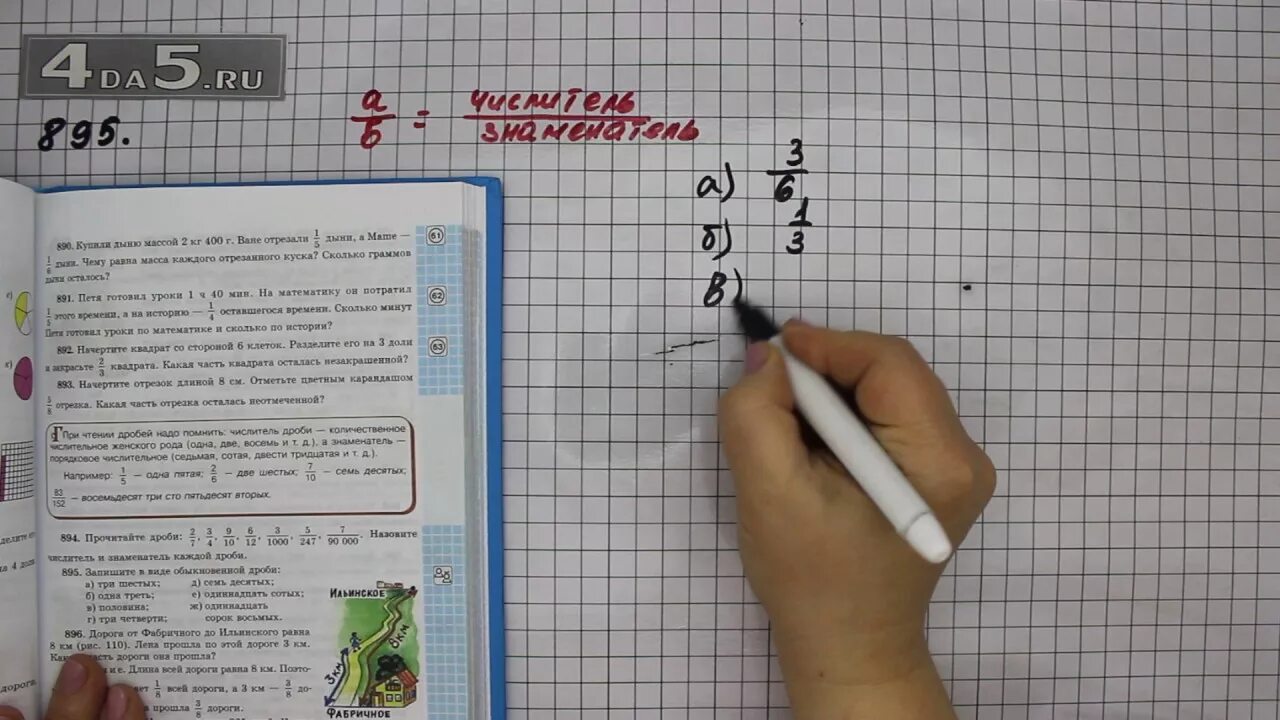 4DA5.RU
895.
a/b = числитель/знаменатель
а) 3/6
б) 1/3
в)
890. Купили дыню массой 2 кг 400 г. Ване отрезали 1/5 дыни, а Маше —
1/6 дыни. Чему равна масса каждого отрезанного куска? Сколько граммов
дыни осталось?
61
891. Петя готовил уроки 1 ч 40 мин. На математику он потратил
1/5 этого времени, а на историю — 1/4 оставшегося времени. Сколько минут
Петя готовил уроки по математике и сколько по истории?
62
892. Начертите квадрат со стороной 6 клеток. Разделите его на 3 доли
и закрасьте 2/3 квадрата. Какая часть квадрата осталась незакрашенной?
63
893. Начертите отрезок длиной 8 см. Отметьте цветным карандашом
5/8 отрезка. Какая часть отрезка осталась неотмеченной?
При чтении дробей надо помнить: числитель дроби — количественное
числительное женского рода (одна, две, восемь и т. д.), а знаменатель —
порядковое числительное (седьмая, сотая, двести тридцатая и т. д.).
Например: 1/5 — одна пятая; 2/6 — две шестых; 7/10 — семь десятых;
83/152 — восемьдесят три сто пятьдесят вторых.
894. Прочитайте дроби: 2/7, 3/4, 9/10, 6/12, 3/1000, 5/247, 7/90 000. Назовите
числитель и знаменатель каждой дроби.
895. Запишите в виде обыкновенной дроби:
а) три шестых; д) семь десятых;
б) одна треть; е) одиннадцать сотых;
в) половина; ж) одиннадцать
г) три четверти; сорок восьмых.
896. Дорога от Фабричного до Ильинского равна
8 км (рис. 110). Лена прошла по этой дороге 3 км.
часть дороги она прошла?
е. Длина всей дороги равна 8 км. Поэто-
1/8 всей дороги, а 3 км — 3/8 до-
прошла 3/8 дороги.
ИЛЬИНСКОЕ
8 км
3 км
ФАБРИЧНОЕ